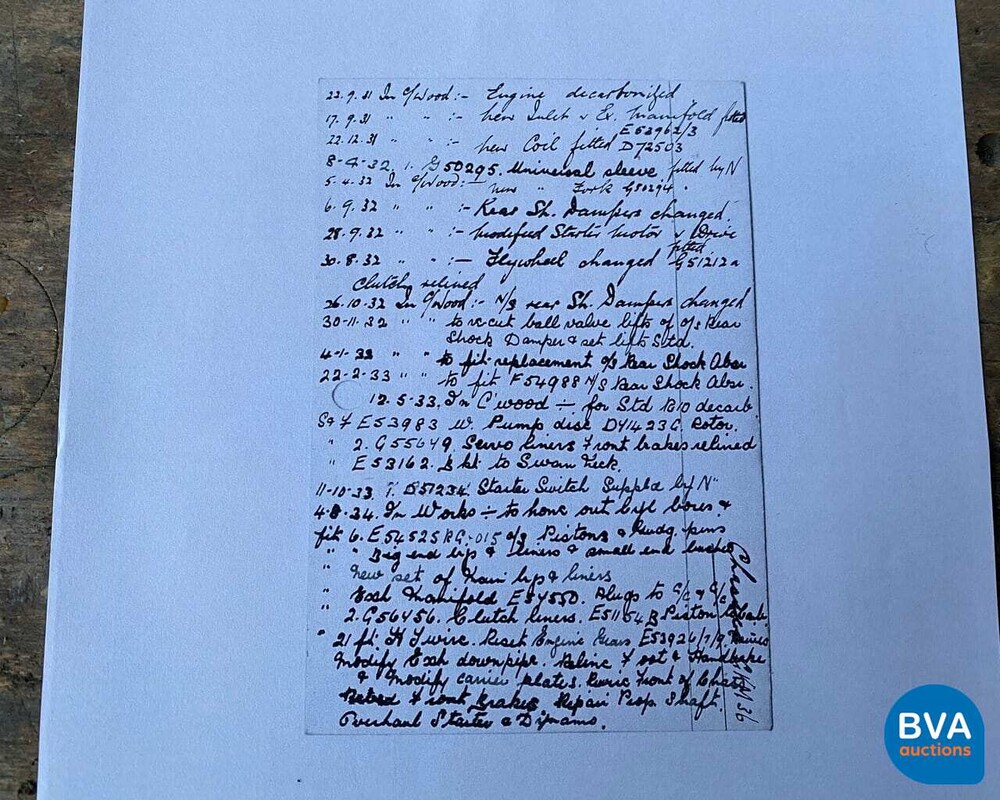 22.9.31 In C/Wood:- Engine decarbonized
17.9.31 " " :- new Inlet & Ex. Manifold fitted
E52962/3
22.12.31 " " :- new Coil fitted D72503
8-4-32. 1. G50295. Universal sleeve, fitted by N
5.4.32 In C/Wood:- new " Fork G50294.
6.9.32 " " :- Rear Sh. Dampers changed.
28.9.32 " " :- Modified Starter Motor & Drive
fitted.
30.8.32 " " :- Flywheel changed G51212a
Clutch relined
26.10.32 In C/Wood:- N/S rear Sh. Dampers changed
30-11-32 " " to re-cut ball valve lifts of O/S Rear
Shock Damper & set lifts Std.
4-1-33 " " to fit replacement O/S Rear Shock Absr
22-2-33 " " to fit F54988 N/S Rear Shock Absr.
12.5-33. In C'wood ÷ for Std decarb.
E53983 W. Pump disc DY1423G. Rotor.
" 2. G55649. Servo liners Front brakes relined
" E53162. Bkt to Swan Neck.
11-10-33. 1. D57234. Starter Switch Suppld by N"
4-8-34. In Works ÷ to hone out Cyl bores &
fit 6. E54525 RG.-015 o/s Pistons & Gudg. pins
" " Big end & liners & small end bushes
" New set of Main & liners
" Exh Manifold E54550. Plugs to
" 2. G56456. Clutch liners. E51154 B Piston
" 21 ft. H.T wire. Reset Engine Gears
Modify Exh downpipe. Reline Foot & Handbrake
& Modify carrier plates. Front of
Front Brakes, Repair Prop. Shaft.
Overhaul Starter & Dynamo.
BVA
auctions